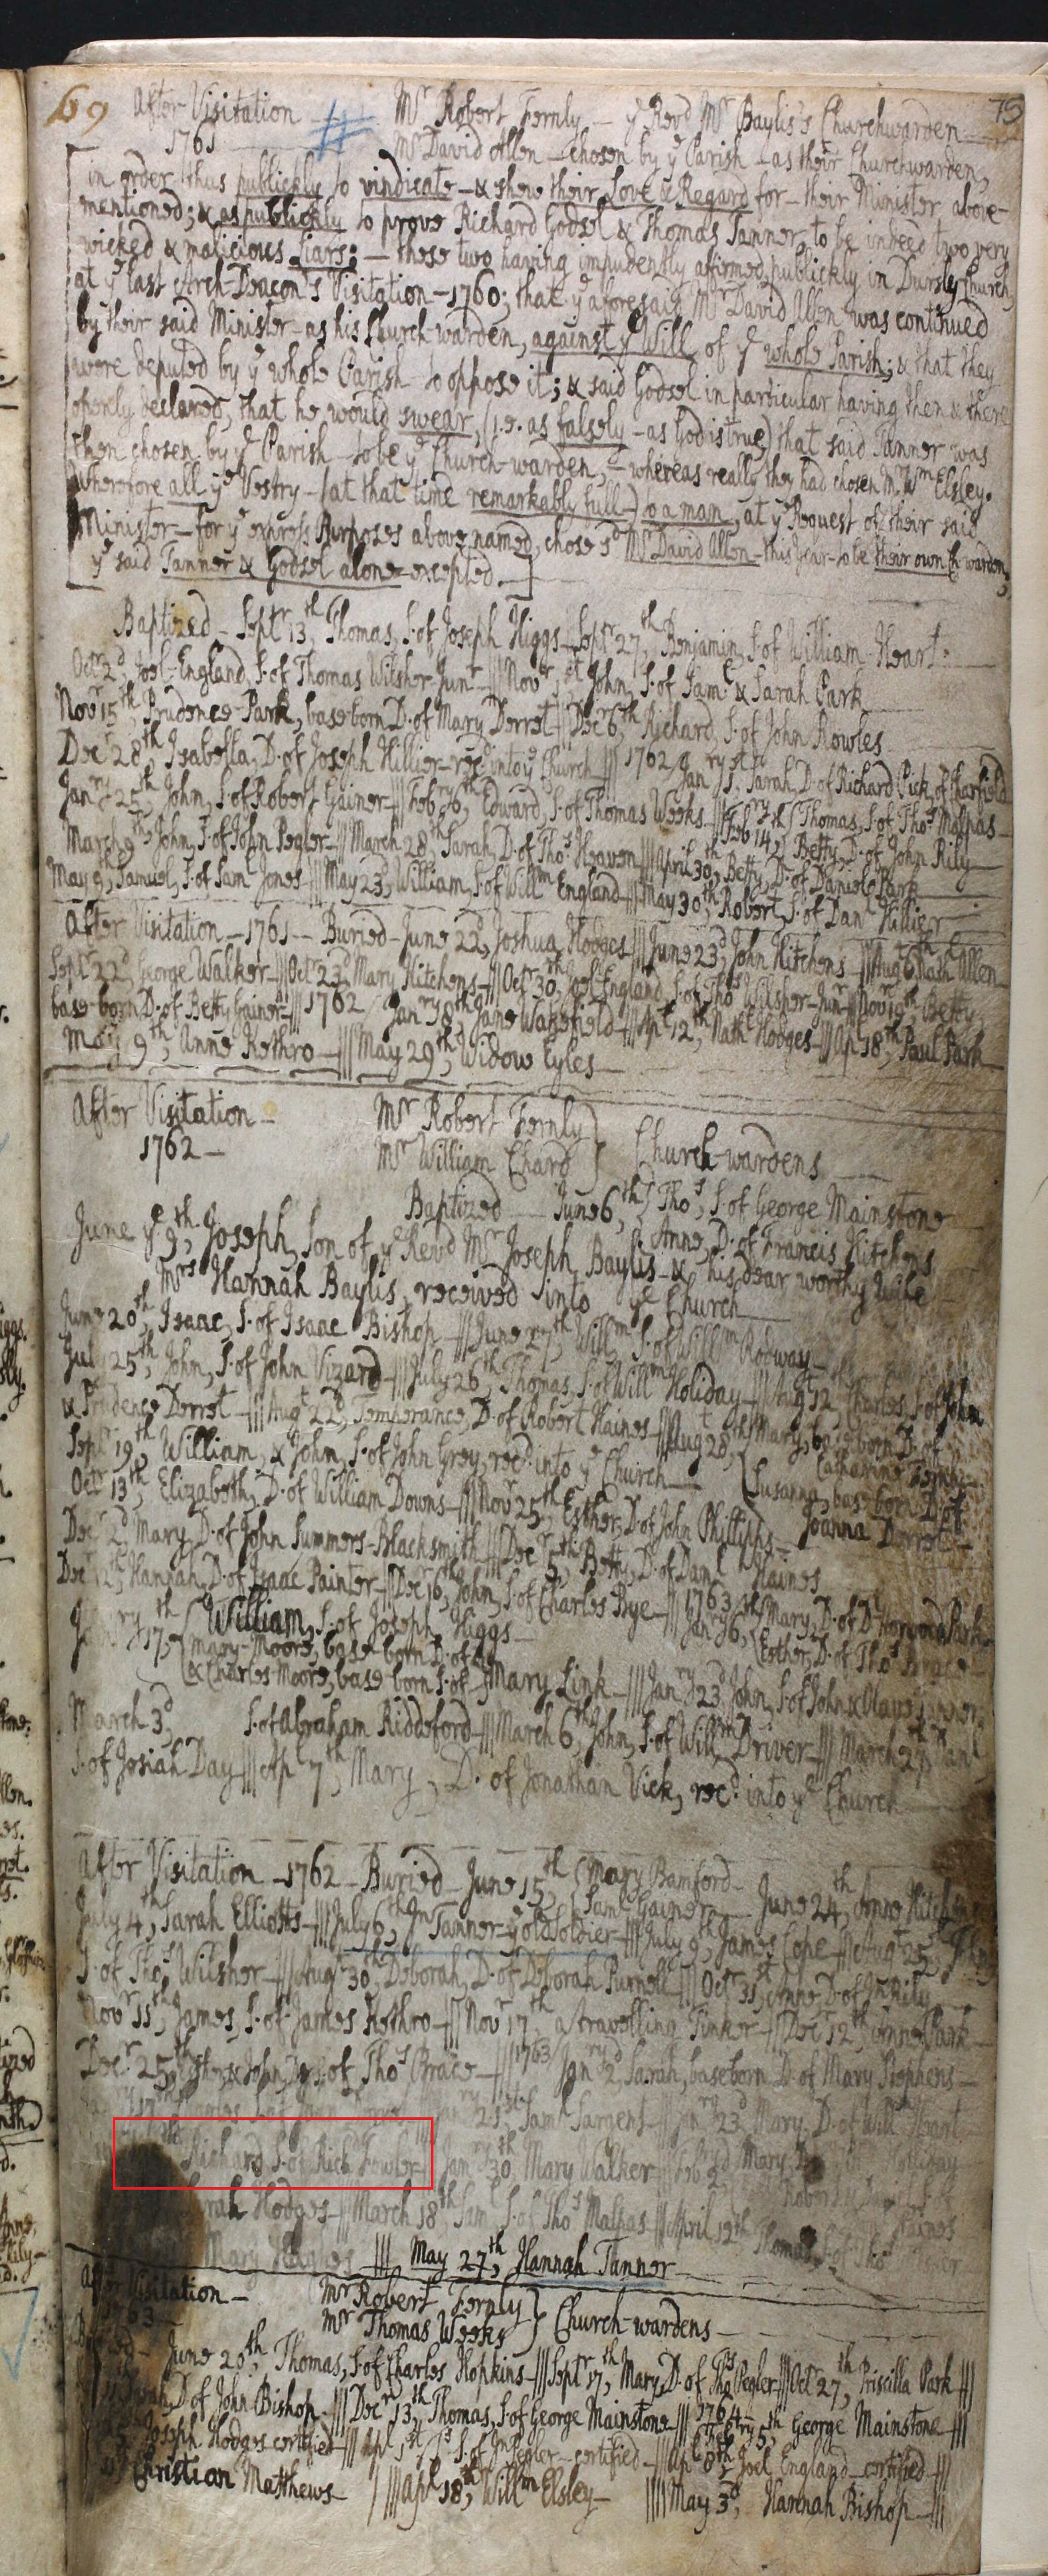 69 After-Visitation 1761 Mr Robert Fernly — ye Revd Mr Baylis's Churchwarden 75
Mr David Allen — chosen by ye Parish — as their Churchwarden,
in order thus publickly to vindicate — & shew their Love & Regard for — their Minister, above-
mentioned; & as publickly to prove Richard Godsel & Thomas Tanner, to be indeed two very
wicked & malicious Liars; — these two having impudently affirmed, publickly in Dursly Church,
at ye last Arch-Deacon's Visitation — 1760; that ye aforesaid Mr David Allen was continued
by their said Minister — as his Church-warden, against ye Will of ye whole Parish; & that they
were deputed by ye whole Parish — to oppose it; & said Godsel in particular having then & there
openly declared, that he would swear, (i.e. as falsely — as God is true) that said Tanner was
then chosen by ye Parish — to be ye Church-warden, — whereas really they had chosen Mr Wm Elsley.
Wherefore all ye Vestry — (at that time remarkably full —) to a man, at ye Request of their said
Minister — for ye express Purposes above named, chose sd Mr David Allen — this Year — to be their own Ch: warden,
ye said Tanner & Godsel alone — excepted. —]
Baptized — Septr 13th, Thomas, S. of Joseph Higgs — Septr 27th, Benjamin, S. of William Heart.
Octr 2d, Joel-England, S. of Thomas Wilsher Junr —||| Novr 1st, John, S. of Sam: & Sarah Park
Novr 15th, Prudence-Park, base born D. of Mary Dorret —| Decr 6th, Richard, S. of John Rowles
Decr 28th, Isabella, D. of Joseph Hillier — recd into ye Church —||| 1762 Janry 1st, Sarah, D. of Richard Pick, of Charfield
Janry 25th, John, S. of Robert Gainer —||| Febry 6th, Edward, S. of Thomas Weeks —|| Febry 14th, Thomas, S. of Thos Malpas
March 9th, John, S. of John Pegler —||| March 28th, Sarah, D. of Thos Heaven —||| April 30th, Betty, D. of Daniel Park Betty, D. of John Rily
May 9th, Samuel, S. of Sam: Jones —||| May 23d, William, S. of Willm England —||| May 30th, Robert, S. of Danl Hillier
After Visitation — 1761 — Buried — June 22d, Joshua Hodges ||| June 23d, John Kitchens —||| Aug: 6th, Nath: Allen
Septr 22d, George Walker —||| Octr 23d Mary Kitchens —||| Octr 30th, Joel England, S. of Thos Wilsher — Junr —|| Novr 19th, Betty,
base-born D. of Betty Gainer —||| 1762 Janry 8th, Jane Wakefield —||| Apl 12th, Nath: Hodges —|| Apl 18th, Paul Park
May 9th, Anne Rethro —||| May 29th, Widow Eyles —
After Visitation — 1762 — Mr Robert Fernly
Mr William Chard } Church-wardens
Baptized — June 6th, Thos, S. of George Mainstone
Anne, D. of Francis Kitchens
June ye 9th, Joseph, Son of ye Revd Mr Joseph Baylis — & his dear worthy Wife
Mrs Hannah Baylis, received into ye Church
June 20th, Isaac, S. of Isaac Bishop —||| June 27th, Willm, S. of Willm Rodway —
July 25th, John, S. of John Vizard —||| July 26th, Thomas, S. of Willm Holiday —||| Aug: 12, Charles, S. of John
& Prudence Dorret —||| Augt 22d, Temperance, D. of Robert Haines —|| Aug: 28th, Mary, base born D. of Catharine
Septr 19th, William, & John, S. of John Grey, recd into ye Church — Susanna, base born D. of
Octr 13th, Elizabeth, D. of William Downs —||| Novr 25th, Esther, D. of John Phillipps — Joanna Dorret —
Decr 2d, Mary, D. of John Summers — Blacksmith —||| Decr 5th, Betty, D. of Danl Haines
Decr 12th, Hannah, D. of Isaac Painter —|| Decr 16th, John, S. of Charles Bye —|| 1763 Janry 16th, Mary, D. of Park
Esther, D. of Thos Brace
Janry 17th, William, S. of Joseph Higgs —
Mary-Moore, base born D. of
& Charles Moore, base born S. of } Mary Link —||| Janry 23d, John, S. of John & Tanner
March 3d, S. of Abraham Riddeford —||| March 6th, John, S. of Willm Driver —||| March 27th, Danl
S. of Josiah Day —||| Apl 7th, Mary, D. of Jonathan Vick, recd into ye Church
After Visitation — 1762 — Buried — June 15th, Mary Bamford —
Saml Gainer — June 24th, Anne Kitchens
July 4th, Sarah Elliotts —||| July 6th, Jn Tanner — ye old Soldier —||| July 9th, James Cope —||| Augt 25th, John
S. of Thos Wilsher —||| Augt 30th, Deborah, D. of Deborah Purnell —||| Octr 31st, Anne, D. of Jn Rily
Novr 11th, James, S. of James Rethro —||| Novr 17th, a travelling Tinker —|| Decr 12th, Anne Park —
Decr 25th, Esther, & John, of Thos Brace —||| 1763 Janry 2d, Sarah, base born D. of Mary Stephens —
17th, Charles, S. of 21st, Saml Sargent — Janry 23d Mary, D. of Will Heart
Richard, S. of Richd Fowler — Janry 30th, Mary Walker — Feb: 2d Mary,
Sarah Hodges —|| March 18th, Saml, S. of Thos Malpas —|| April 12th Haines
Mary Haines ||| May 27th, Hannah Tanner —
After Visitation — 1763 Mr Robert Fernly
Mr Thomas Weeks } Church-wardens —
June 20th, Thomas, S. of Charles Hopkins —||| Septr 17th, Mary, D. of Thos Pegler ||| Octr 27th, Priscilla Park |||
Sarah, D. of John Bishop —||| Decr 13th, Thomas, S. of George Mainstone ||| 1764 — Febry 5th George Mainstone —|||
Joseph Hodges certified —||| Apl 1st S. of Jn Pegler — certified —||| Apl 8th, Joel England — certified —|||
Christian Matthews — ||| Apl 18th, Willm Elsley — |||| May 3d, Hannah Bishop —|||